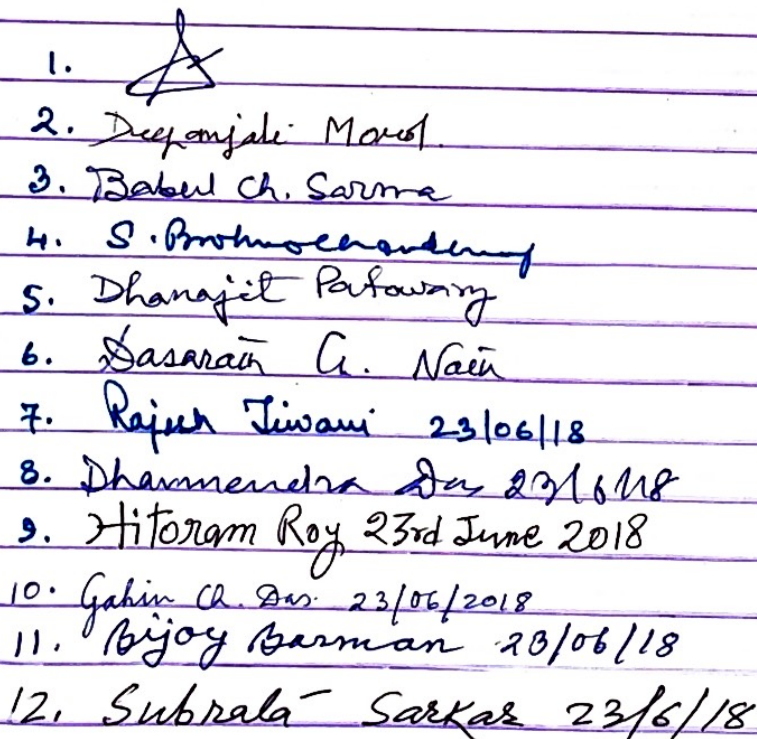 1.
2. Deepanjali
3. Babul Ch. Sarma
4. S.
5. Dhanajit Patowary
6. Dasarath Ch. Nath
7. Rajesh Tiwari 23/06/18
8. Dharmendra Das 23/6/18
9. Hitoram Roy 23rd June 2018
10. Gahin Ch. Das. 23/06/2018
11. Bijoy Barman 23/06/18
12. Subrata Sarkar 23/6/18